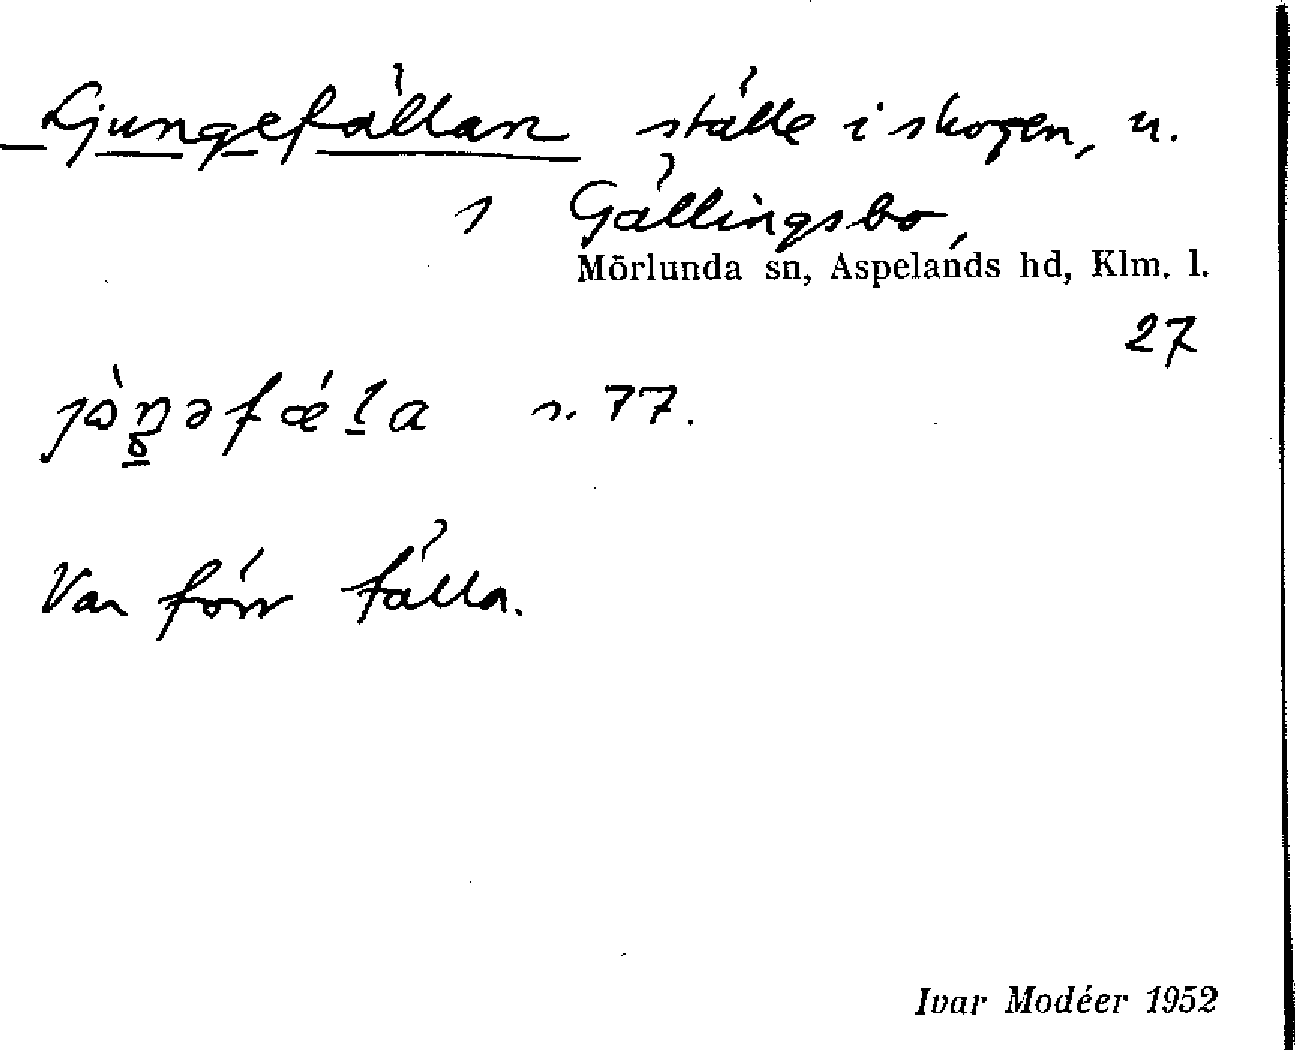 Ljungefällan ställe i skogen, u.
s Gällingsbo,
Mörlunda sn, Aspelands hd, Klm. l.
27
s. 77.
Var förr fälla.
Ivar Modéer 1952